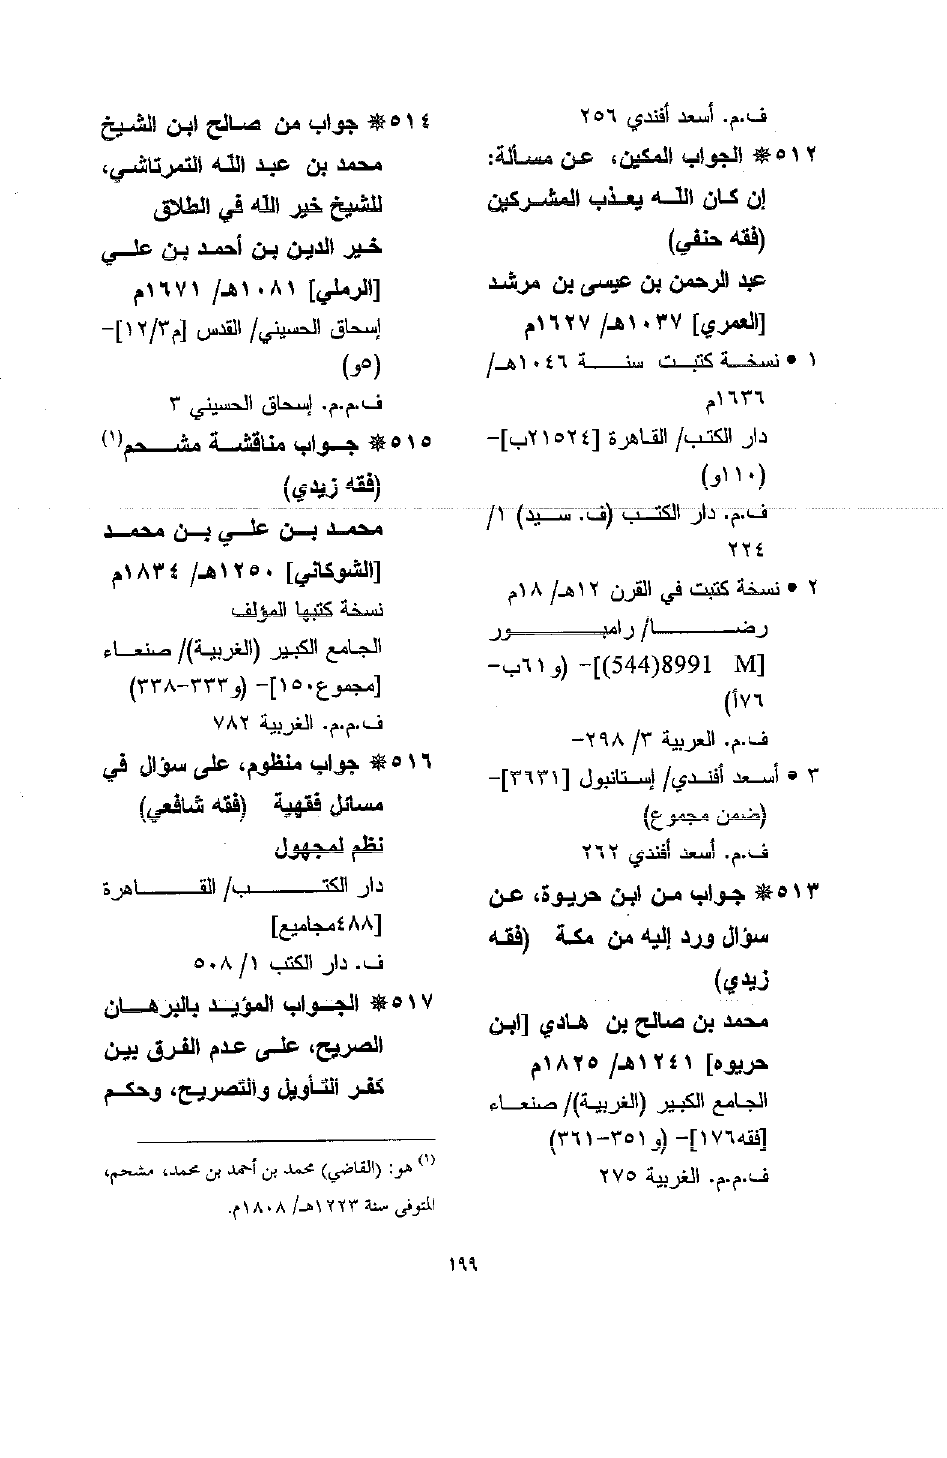 ف.م. أسعد أفندي ٢٥٦
٥١٢* الجواب المكين، عن مسألة:
إن كان الله يعذب المشركين
(فقه حنفي)
عبد الرحمن بن عيسى بن مرشد
[العمري] ١٠٣٧هـ/ ١٦٢٧م
١ • نسخة كتبت سنة ١٠٤٦هـ/
١٦٣٦م
دار الكتب/ القاهرة [٢١٥٢٤ب]-
(١١٠و)
ف.م. دار الكتب (ف. سيد) ١/
٢٢٤
٢ • نسخة كتبت في القرن ١٢هـ/ ١٨م
رضا/ رامبور
[8991 M(544)]- (و٦١ب-
٧٦أ)
ف.م. العربية ٣/ ٢٩٨-
٣ • أسعد أفندي/ إستانبول [٣٦٣١]-
(ضمن مجموع)
ف.م. أسعد أفندي ٢٦٢
٥١٣* جواب من ابن حريوة، عن
سؤال ورد إليه من مكة (فقه
زيدي)
محمد بن صالح بن هادي [ابن
حريوه] ١٢٤١هـ/ ١٨٢٥م
الجامع الكبير (الغربية)/ صنعاء
[فقه١٧٦]- (و ٣٥١-٣٦١)
ف.م.م. الغربية ٢٧٥
٥١٤* جواب من صالح ابن الشيخ
محمد بن عبد الله التمرتاشي،
للشيخ خير الله في الطلاق
خير الدين بن أحمد بن علي
[الرملي] ١٠٨١هـ/ ١٦٧١م
إسحاق الحسيني/ القدس [م١٢/٣]-
(٥و)
ف.م.م. إسحاق الحسيني ٣
٥١٥* جواب مناقشة مشحم(١)
(فقه زيدي)
محمد بن علي بن محمد
[الشوكاني] ١٢٥٠هـ/ ١٨٣٤م
نسخة كتبها المؤلف
الجامع الكبير (الغربية)/ صنعاء
[مجموع١٥٠]- (و٣٣٣-٣٣٨)
ف.م.م. الغربية ٧٨٢
٥١٦* جواب منظوم، على سؤال في
مسائل فقهية (فقه شافعي)
نظم لمجهول
دار الكتب/ القاهرة
[٤٨٨مجاميع]
ف. دار الكتب ١/ ٥٠٨
٥١٧* الجواب المؤيد بالبرهان
الصريح، على عدم الفرق بين
كفر التأويل والتصريح، وحكم
(١) هو: (القاضي) محمد بن أحمد بن محمد، مشحم،
المتوفى سنة ١٢٢٣هـ/ ١٨٠٨م.
١٩٩